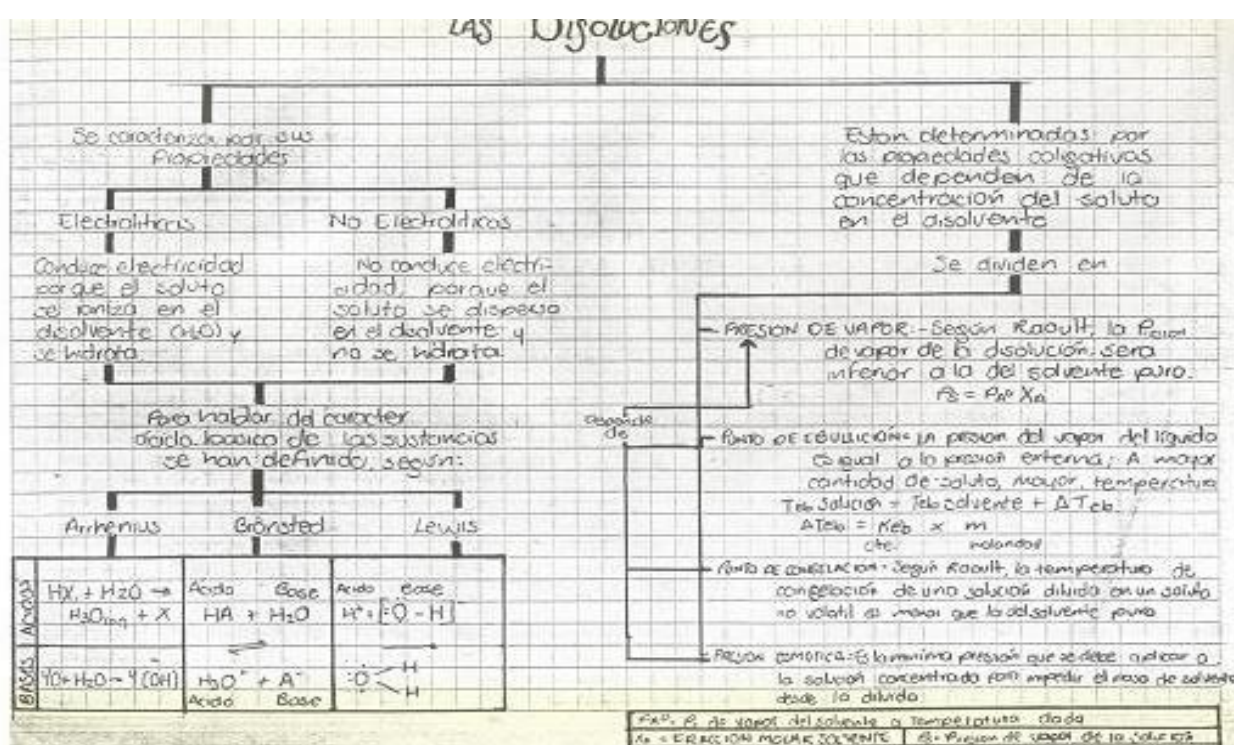 LAS DISOLUCIONES
Se caracteriza por sus
Propiedades
Electroliticas
No Electroliticas
Conduce electricidad
porque el soluto
se ioniza en el
disolvente (H2O) y
se hidrata
No conduce electri-
cidad, porque el
soluto se dispersa
en el disolvente y
no se hidrata.
Para hablar del caracter
acido basico de las sustancias
se han definido, según:
Arrhenius
Brönsted
Lewis
ACIDOS
HX + H2O →
H3O + X
Acido Base
HA + H2O
⇌
Acido Base
H+ + [:O-H]-
→
BASES
YO + H2O → Y(OH)
H3O+ + A-
Acido Base
:O H
H
Estan determinadas por
las propiedades coligativas
que dependen de la
concentración del soluto
en el disolvente
Se dividen en
depende
de
PRESION DE VAPOR:- Según Raoult, la
de vapor de la disolución, sera
inferior a la del solvente puro.
PUNTO DE EBULLICIÓN= LA presion del vapor del líquido
es igual a la presión externa; A mayor
cantidad de soluto, mayor, temperatura
Teb solución = Teb solvente + ΔTeb
ΔTeb = Keb x m
cte.
PUNTO DE CONGELACION- Según Raoult, la temperatura de
congelación de una solución diluida en un soluto
no volatil es menor que la del solvente puro
PRESION OSMOTICA: Es la minima presión que se debe aplicar a
la solución concentrada para impedir el paso de solvente
desde la diluida
P. de vapor del solvente a Temperatura dada
= FRACCION MOLAR SOLVENTE
Presion de vapor de la solución